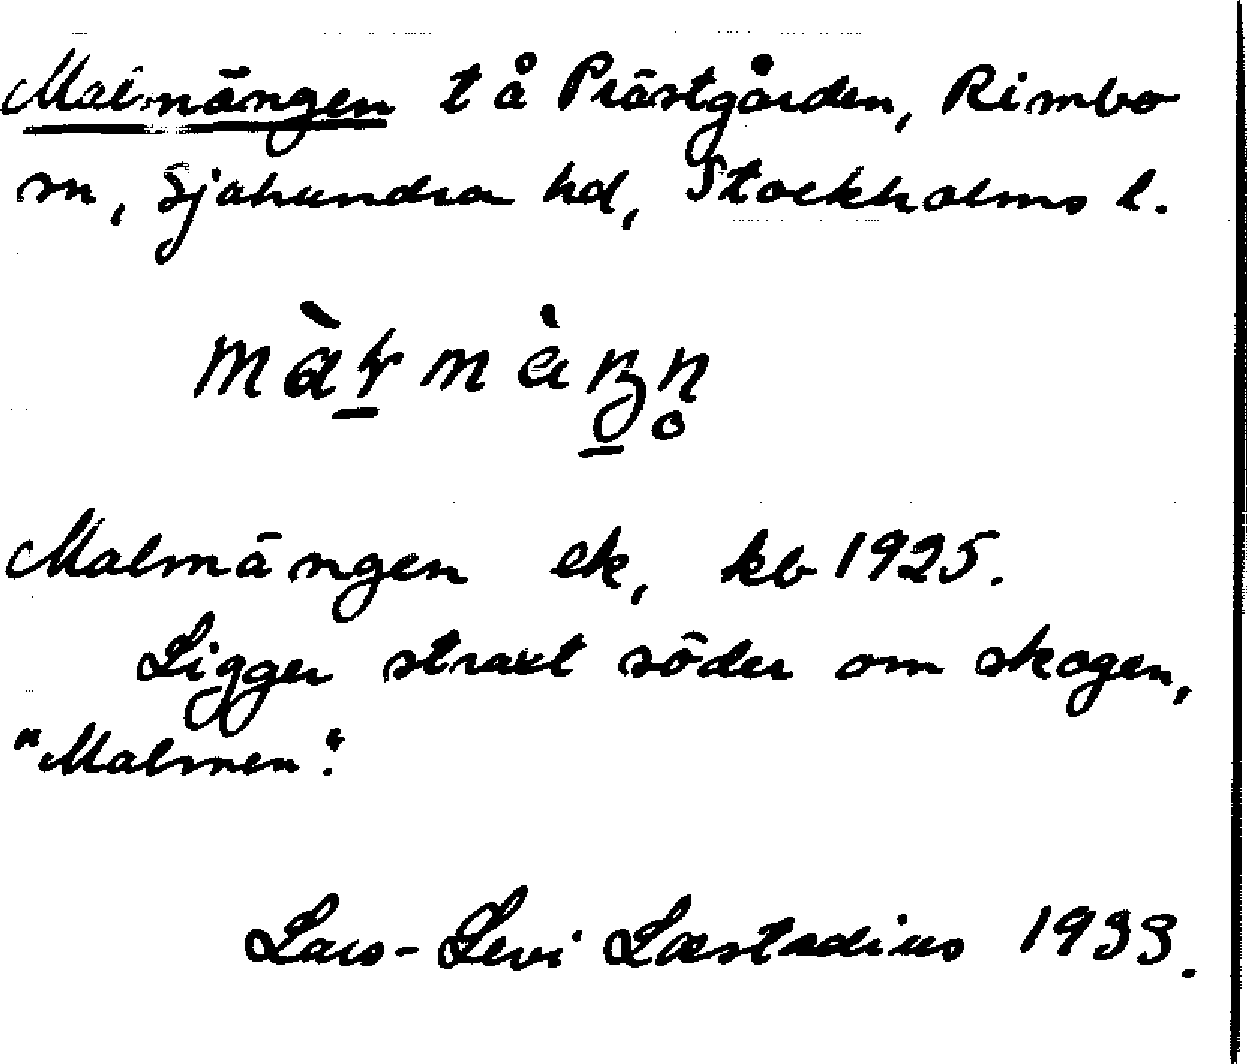 Malmängen t å Prästgården, Rimbo
sn, Sjuhundra hd, Stockholms l.
Malmängen ek, kb 1925.
Ligger straxt söder om skogen,
"Malmen".
Lars-Levi Læstadius 1933.